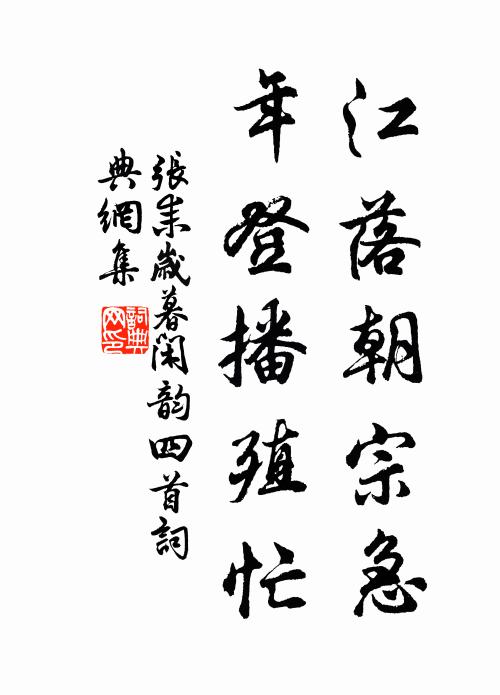 江落朝宗急
年登播殖忙
張耒歲暮閑韵四首詞
典網集
詞典
网印